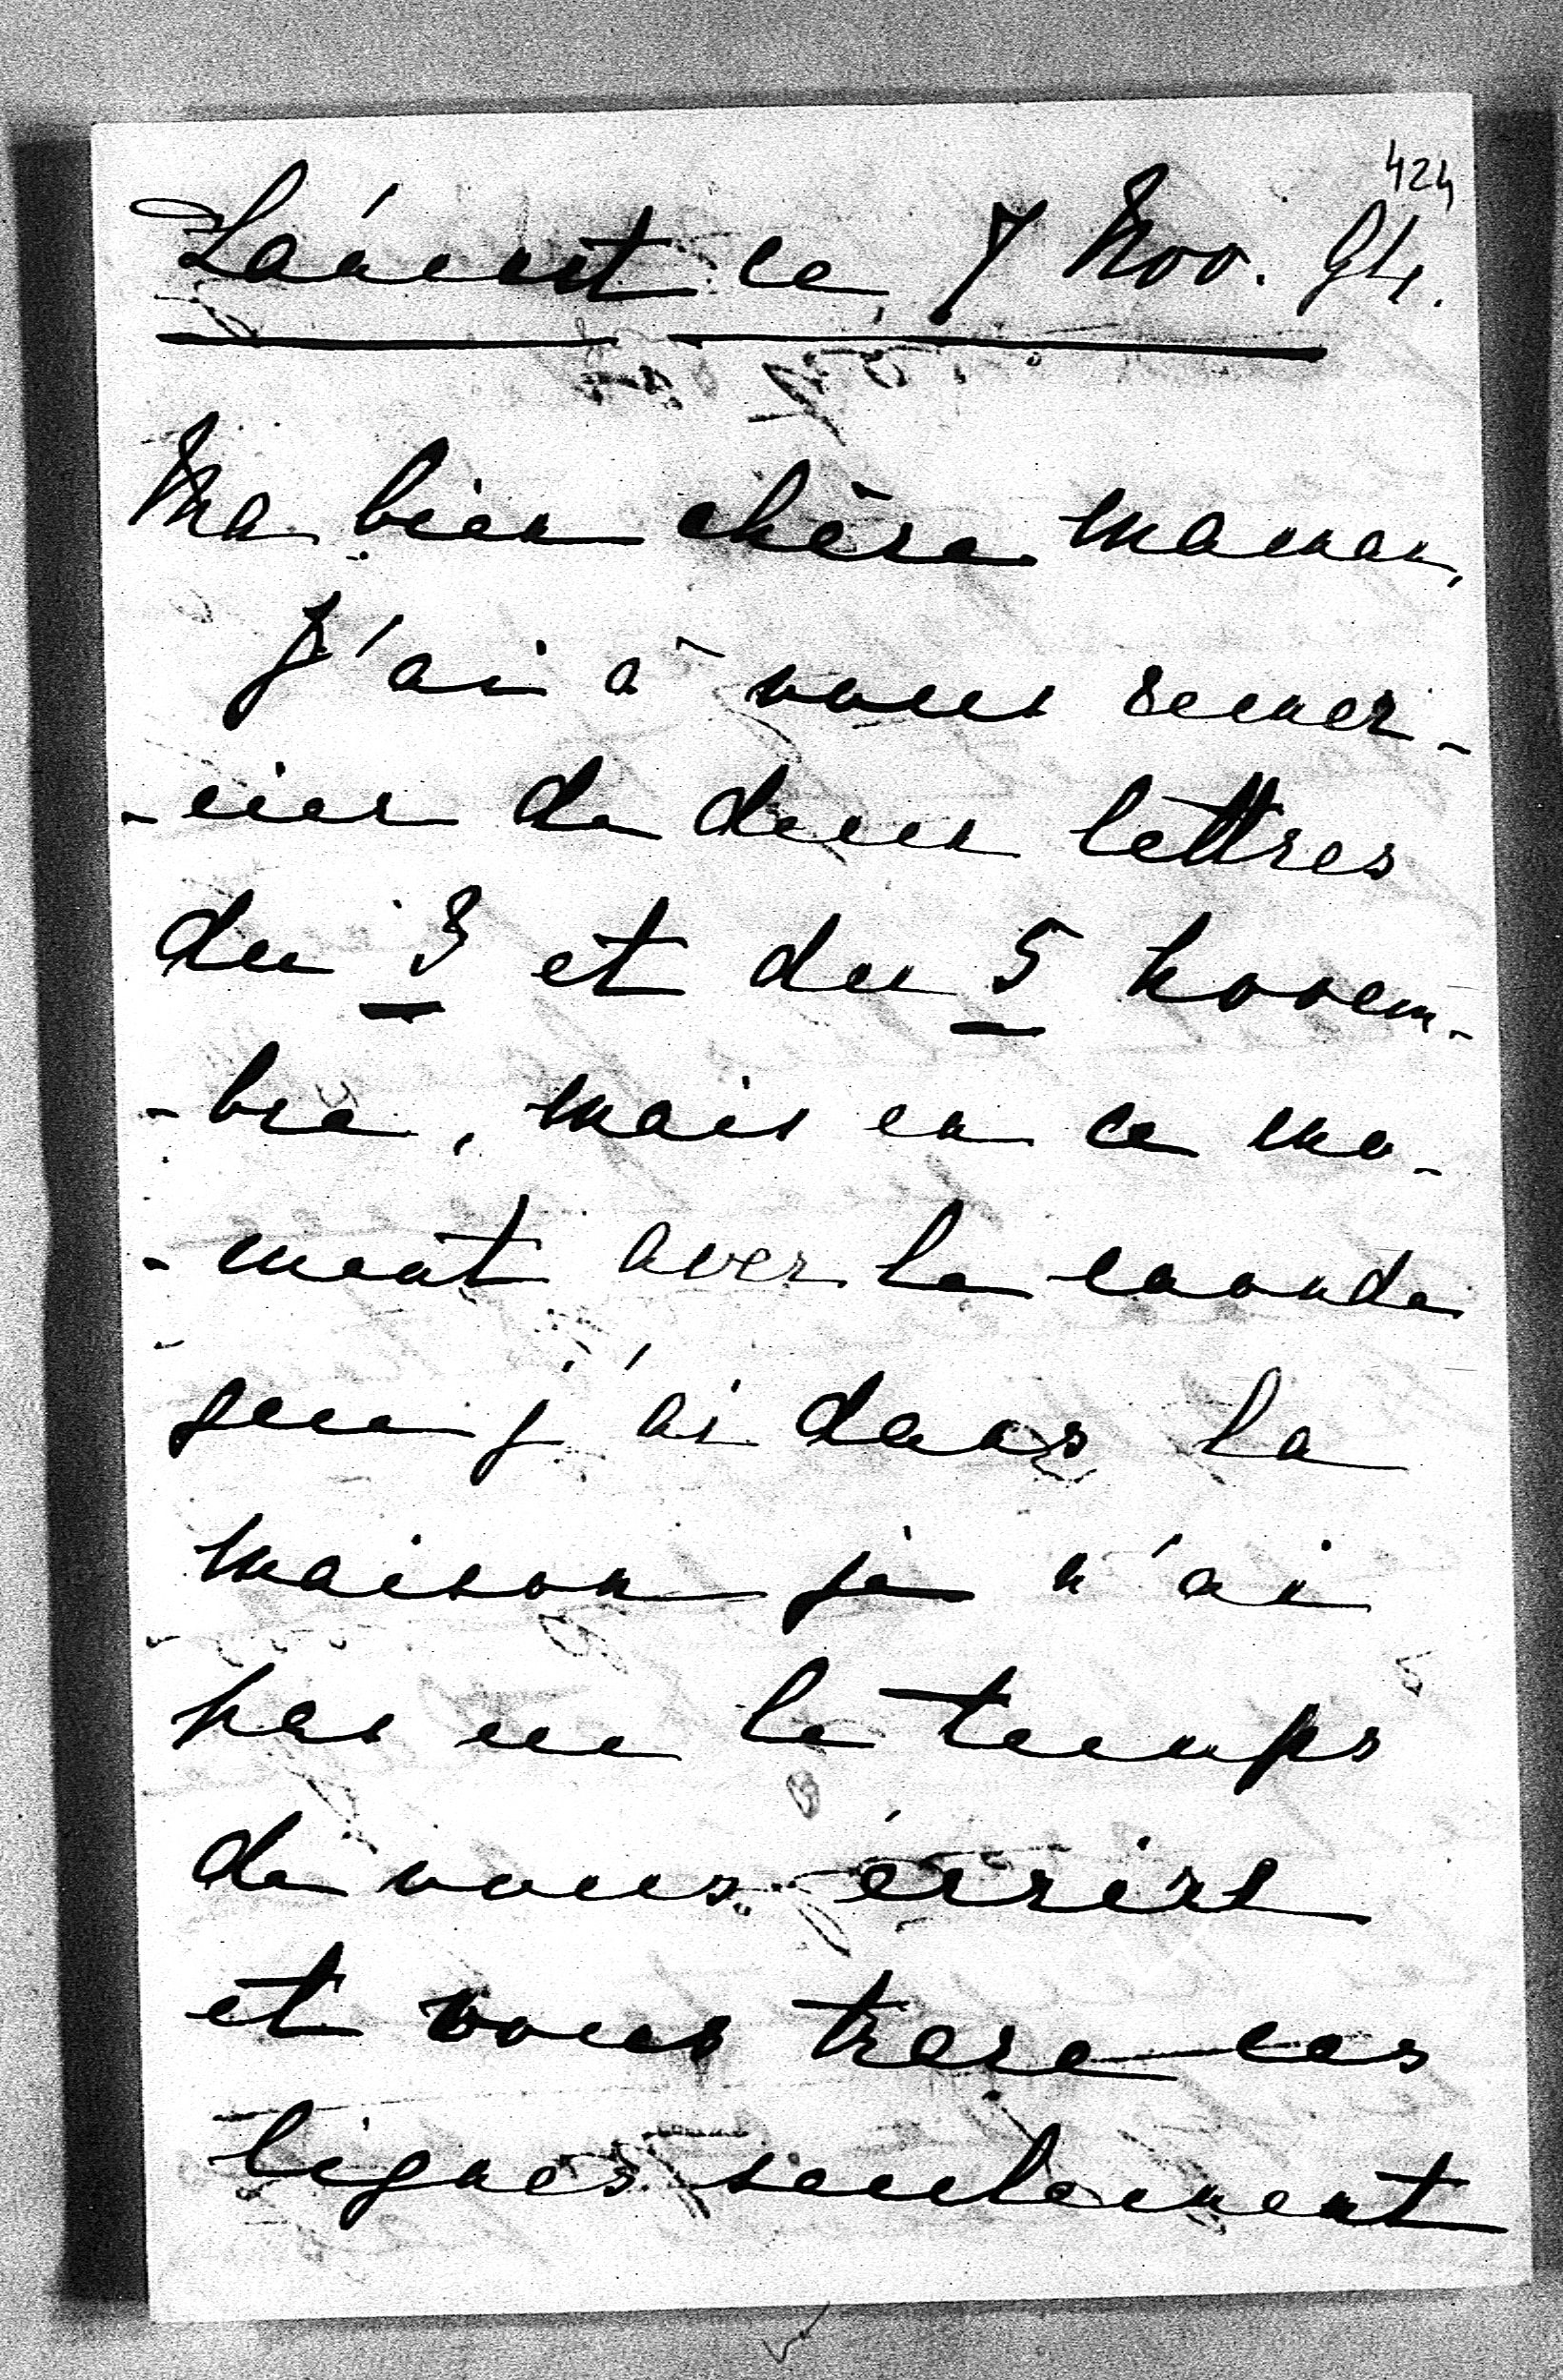 424
Láncut ce 7 Nov. 94.
Ma bien chère maman,
J'ai à vous remer-
-cier de deux lettres
du 3 et du 5 novem-
-bre, mais en ce mo-
-ment avec le monde
que j'ai dans la
maison je n'ai
pas eu le temps
de vous écrire
et vous trace ces
lignes seulement